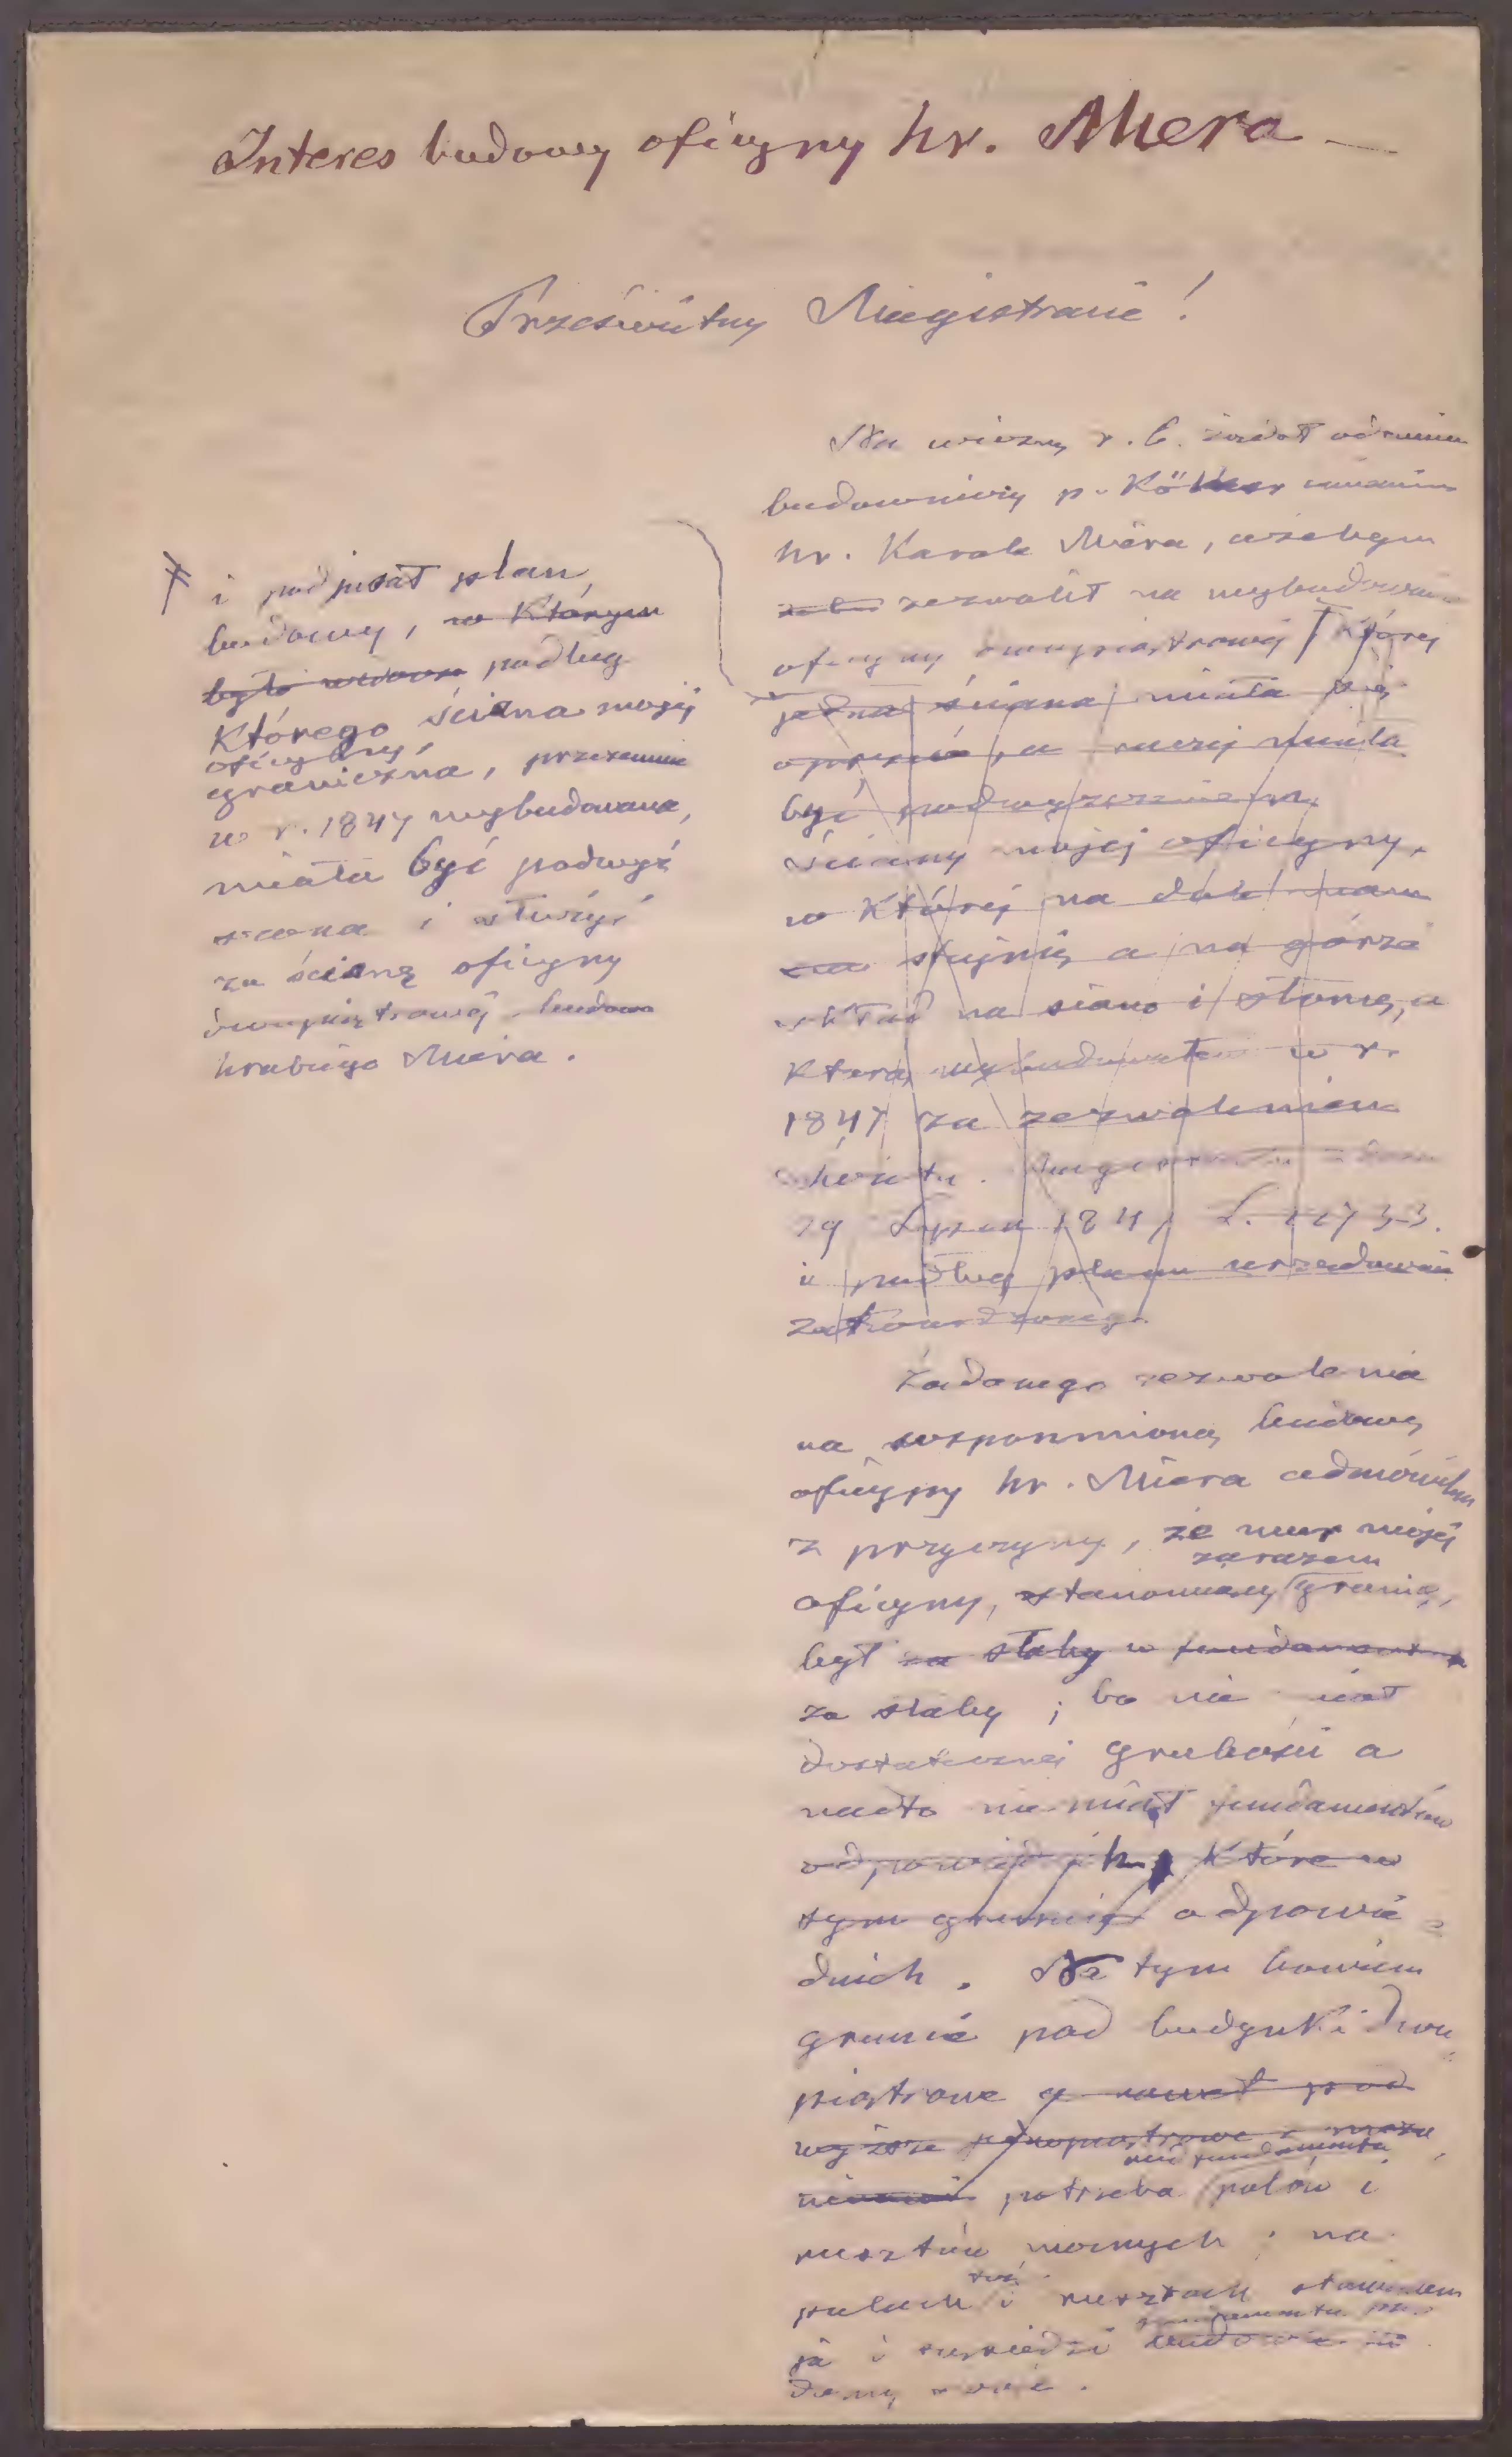 Interes budowy oficyny hr. Miera —
Prześwietny Magistracie!
Na wiosnę r. b. żądał odemnie
budowniczy p. Kö imieniem
hr. Karola Miera, ażebym
zezwolił na wybudowanie
oficyny dwupiątrowéj której
jedna ściana miała się
oprzeć, a raczej miała
być podwyższeniem
ściany mojéj oficyny,
w któréj na dole mam
stajnię a na górze
skład na siano i słomę, a
którą wybudowałem w r.
1847 za zezwoleniem
Świetn. Magistratu z dnia
29 Lipca 1847 L.
i podług planu urzędownie
zatwierdzonego.
‡ i podpisał plan
budowy, w którym
było podług
którego ściana mojéj
oficyny
graniczna, przezemnie
w r. 1847 wybudowana,
miała być podwyż
szona i służyć
za ścianę oficyny
dwupiątrowéj budowa
hrabiego Miera.
Żądanego zezwolenia
na wspomnioną budowę
oficyny hr. Miera odmówiłem
z przyczyny, że mur mojéj
zarazem
oficyny, stanowiący granicę,
był za słaby w fundamentach
za słaby; bo nie miał
dostatecznéj grubości a
nadto nie miał fundamentów
odpowiednich, które w
tym gruncie odpowie-
dnich. Na tym bowiem
gruncie pod budynki dwu
piątrowe a nawet pod
wyższe jednopiątrowe
na fundamenta
potrzeba palów i
rusztów mocnych; na
też
palach i rusztach stawiałem
fundamenta pod
ja i sąsiedzi
domy swoje.